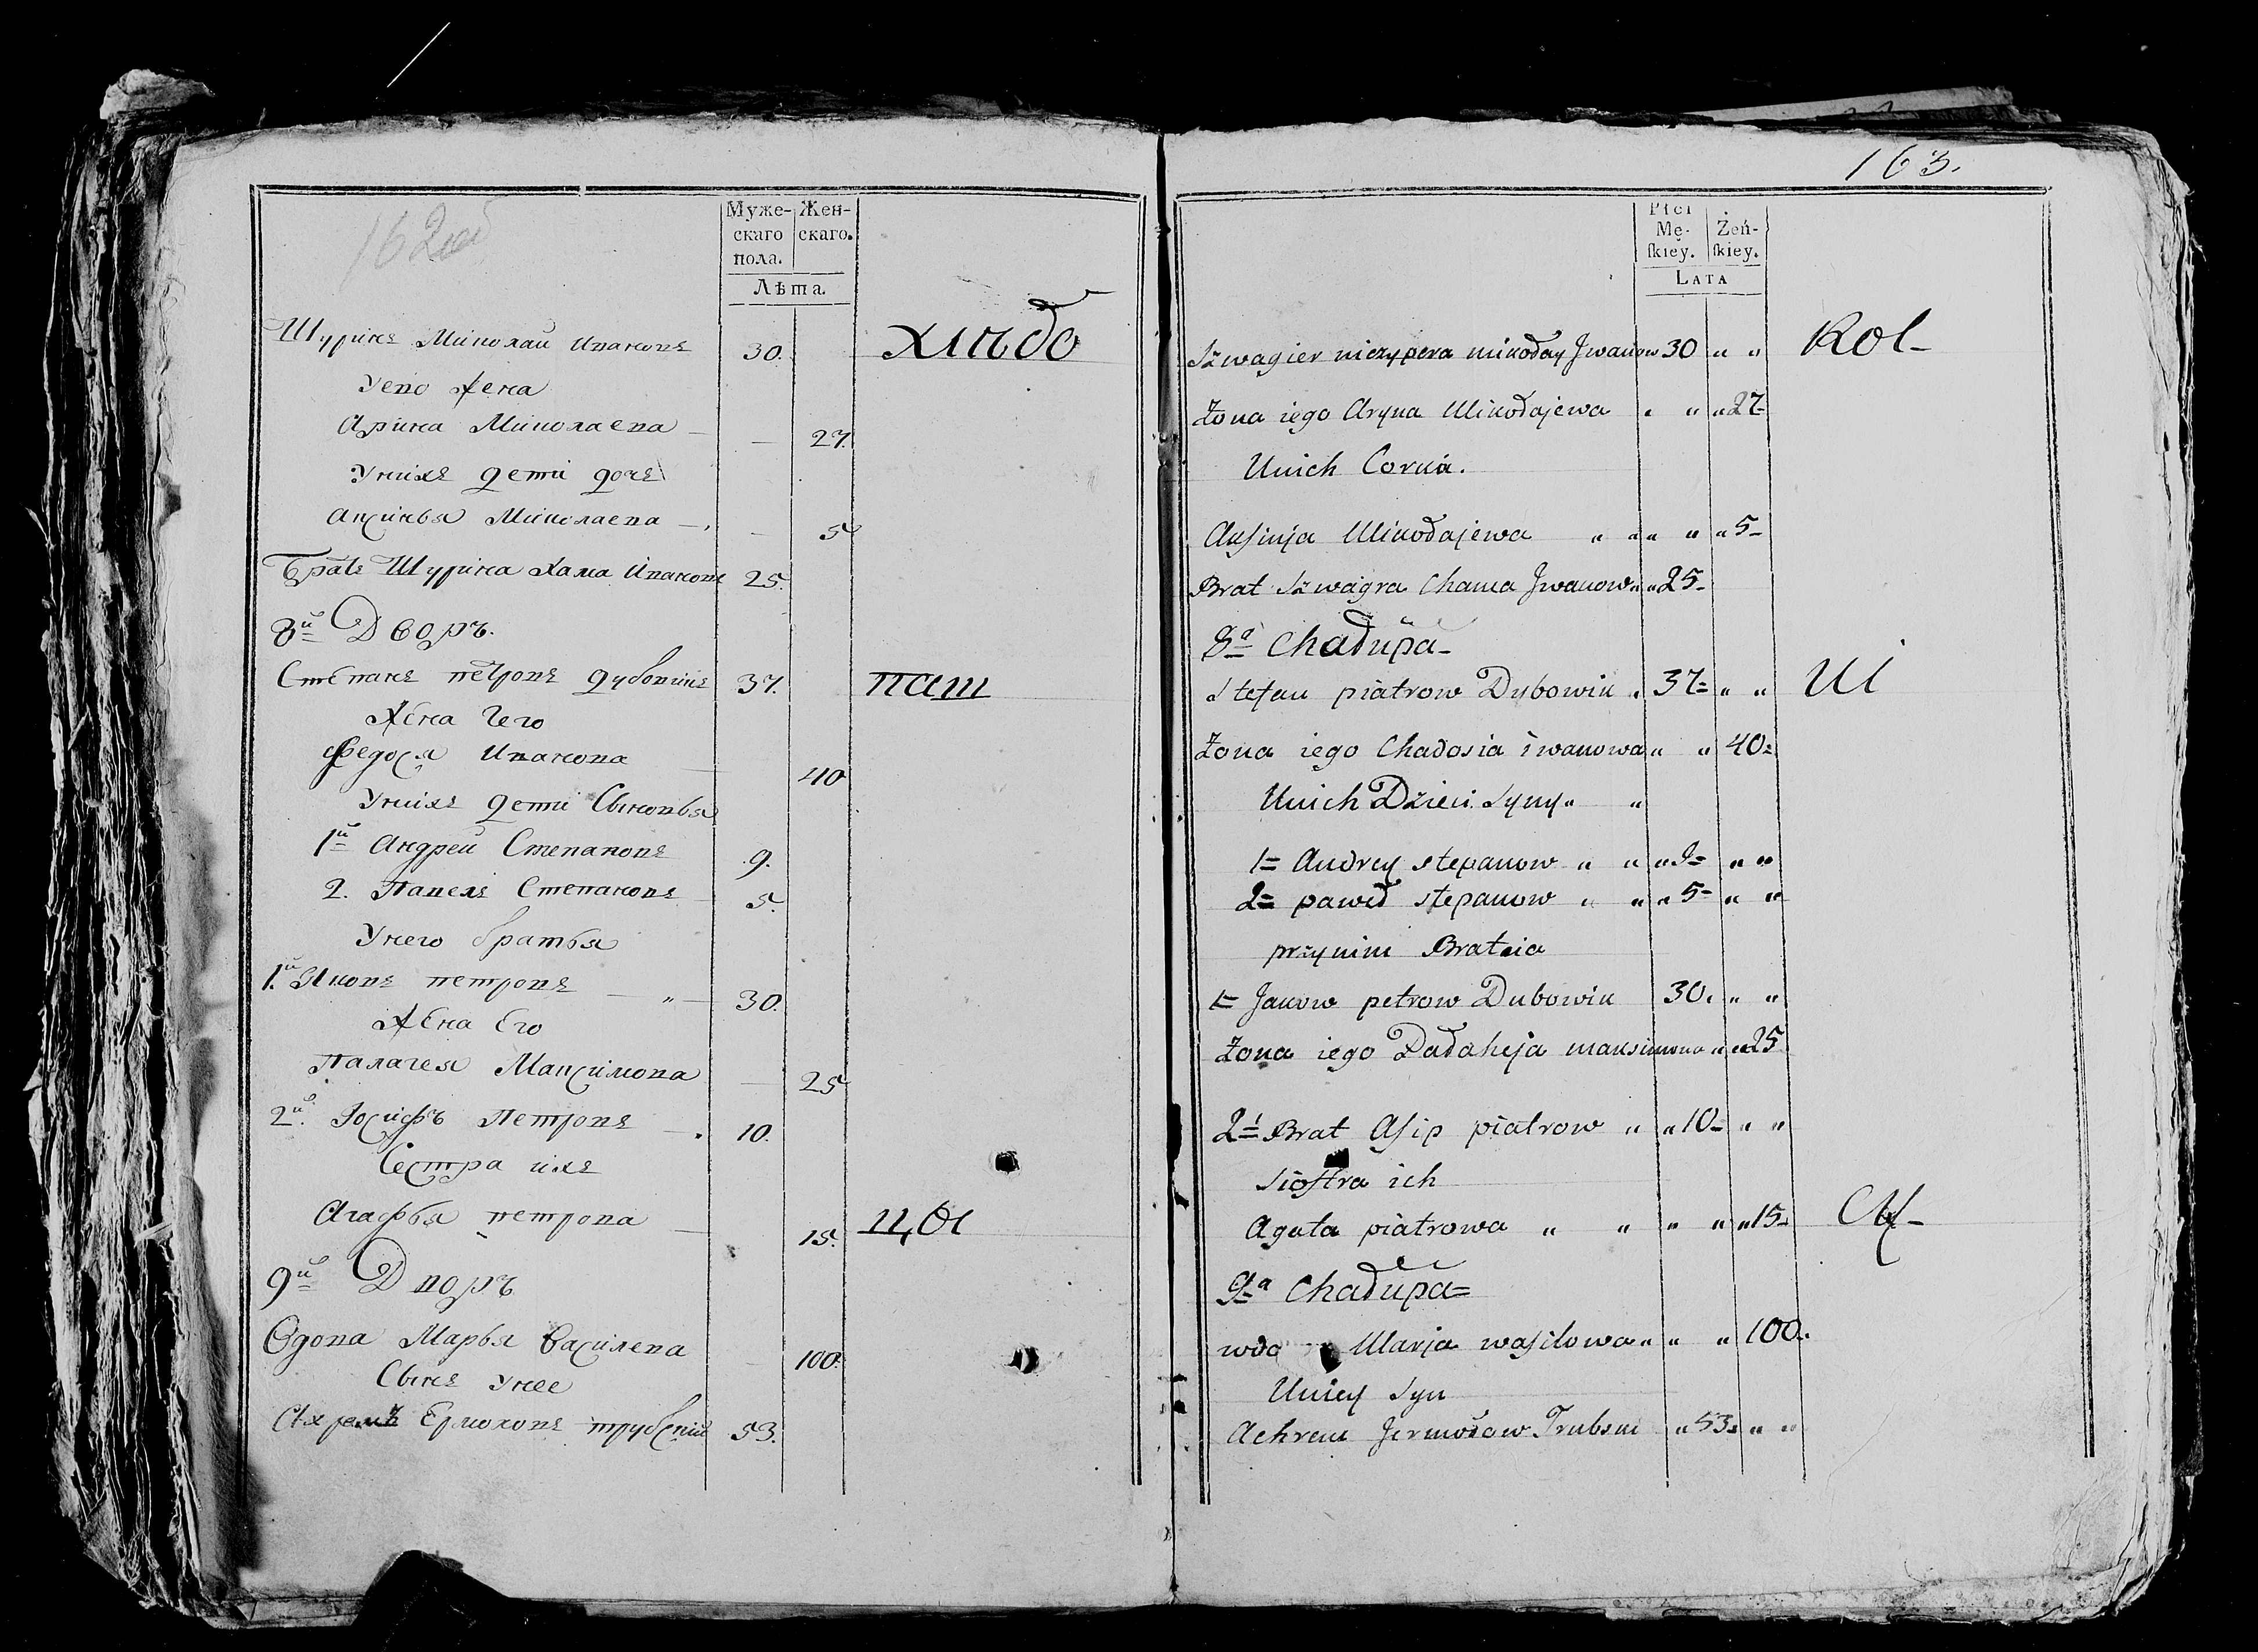 162об
Муже-
скаго
пола.
Жен-
скаго.
Лѣта.
Шуринъ Миколай Ивановъ 30.
хлѣбо
Уево жена
Арина Миколаева — — 27.
Унихъ дети дочь
Аксинья Миколаева — — 5
Братъ Шурина Хама Ивановъ 25.
8й Дворъ.
Степанъ петровъ дубовикъ 37.
паш
Жена Его
Федося Иванова — 40
Унихъ дети Сыновья
1й Андрей Степановъ 9.
2. Павелъ Степановъ 5.
Унего братья
1й Яковъ петровъ — „ — 30.
Жена Его
Палагея Максимова — 25
2й Іосифъ Петровъ — 10.
Сестра ихъ
Агафья петрова — 15.
цы
9й Дворъ
Вдова Марья Василева — 100.
Сынъ Унее
Ахремъ Ермоловъ трубский 53.
163.
Płci
Mę-
ſkiey.
Żeń-
ſkiey.
LATA
Szwagier niczypera mikołay Jwanow 30 „ „
Rol-
Żona iego Aryna Mikołajewa „ „ „ 27-
Unich Corka.
Auſinja Mikołajewa „ „ „ „ „ 5-
Brat Szwagra Chama Jwanow „ „ 25-
8a Chałupa-
Stefan piatrow Dubowik „ 37= „ „
ni
Żona iego Chadosia iwanowa „ „ 40=
Unich Dzieci Syny „ „
1= Andrey stepanow „ „ „ 9= „ „
2= paweł stepanow „ „ „ 5- „ „
przynim Bratcia
1= Jakow petrow Dubowik 30. „ „
Żona iego Pałaheja maksimowa „ „ 25
2i= Brat Aſip piatrow „ „ 10- „ „
Sioſtra ich
Agata piatrowa „ „ „ „ „ 15-
9a Chałupa=
wdo Marja waſilowa „ „ „ 100.
Uniey Syn
Achrem Jermołow Trubski „ 53= „ „